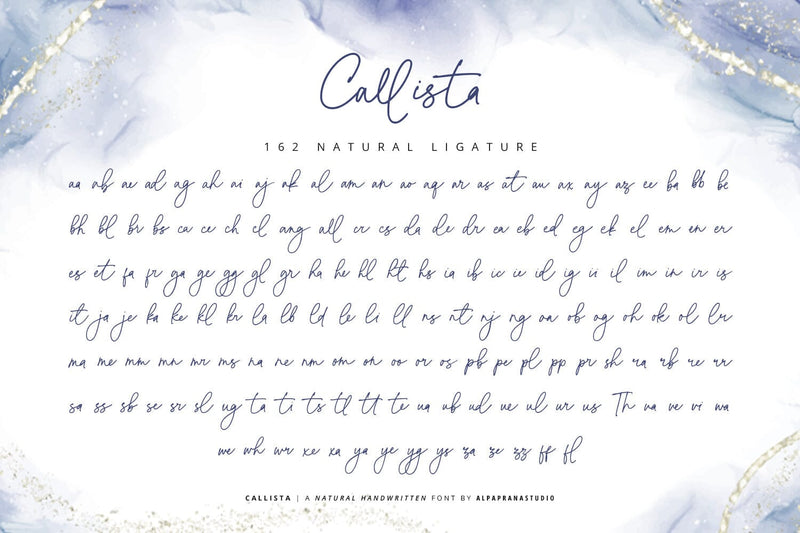 Callista
162 NATURAL LIGATURE
aa ab ae ad ag ah ai aj ak al am an ao aq ar as at au ax ay az ee ba bb be
bh bl br bs ca ce ch cl ang all cr cs da de dr ea eb ed eg ek el em en er
es et fa fr ga ge gg gl gr ha he hl ht hs ia ib ic ie id ig ii il im in ir is
it ja je ka ke kl kr la lb ld le li ll ns nt nj ng oa ob og oh ok ol lr
ma me mm mn mr ms na ne nm om on oo or os pb pe pl pp pr sh ra rb re rr
sa ss sb se sr sl ug ta ti ts tl tt te ua ub ud ue ul ur us Th va ve vi wa
we wh wr xe xa ya ye yg ys za ze zz ff fl
CALLISTA | A NATURAL HANDWRITTEN FONT BY ALPAPRANASTUDIO